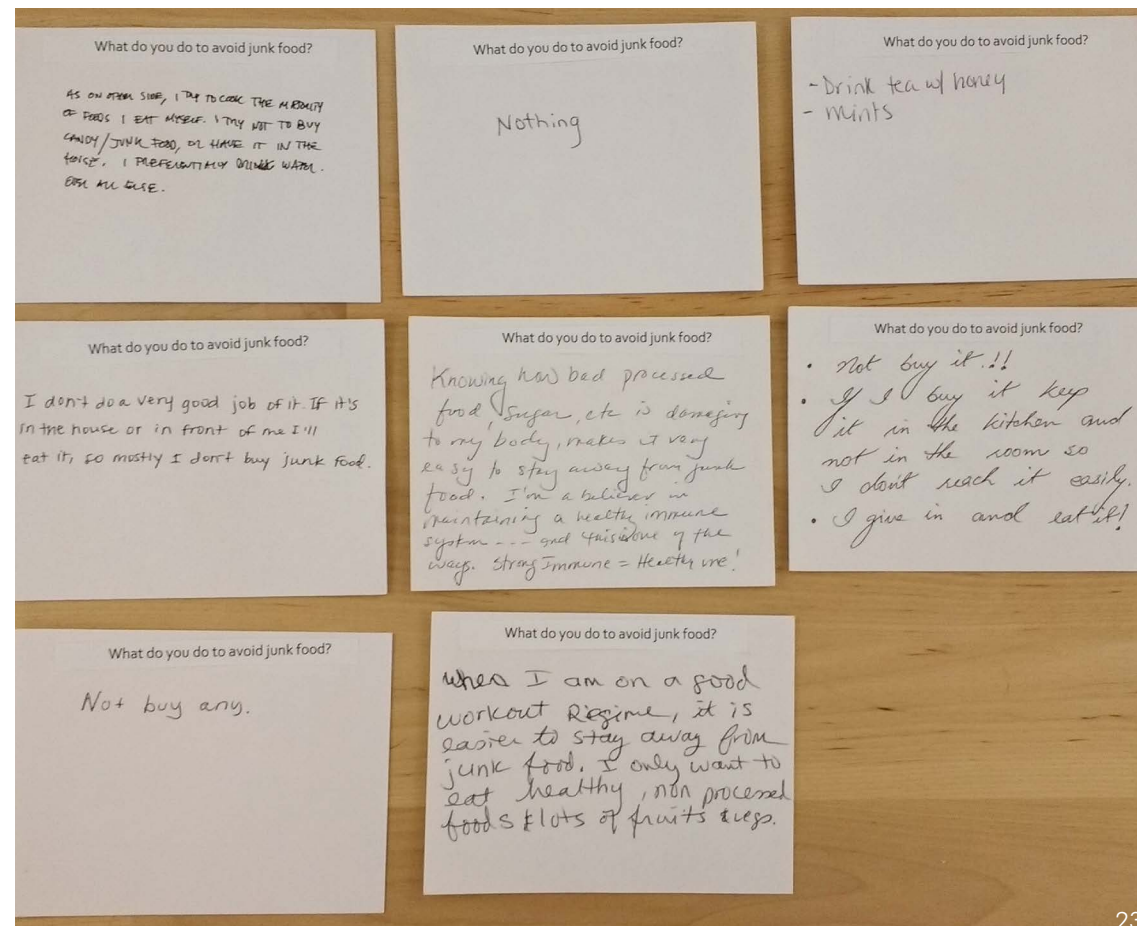 What do you do to avoid junk food?
AS ON OTHER SIDE, I TRY TO COOK THE MAJORITY
OF FOODS I EAT MYSELF. I TRY NOT TO BUY
CANDY/JUNK FOOD, OR HAVE IT IN THE
HOUSE. I PREFERENTIALLY DRINK WATER
OVER ALL ELSE.
What do you do to avoid junk food?
Nothing
What do you do to avoid junk food?
- Drink tea w/ honey
- Mints
What do you do to avoid junk food?
I don't do a very good job of it. If it's
in the house or in front of me I'll
eat it, so mostly I don't buy junk food.
What do you do to avoid junk food?
Knowing how bad processed
food, sugar, etc is damaging
to my body, makes it very
easy to stay away from junk
food. I'm a believer in
maintaining a healthy immune
system --- and this is one of the
ways. Strong Immune = Healthy me!
What do you do to avoid junk food?
• Not buy it!!!
• If I buy it keep
it in the kitchen and
not in the room so
I don't reach it easily.
• I give in and eat it!
What do you do to avoid junk food?
Not buy any.
What do you do to avoid junk food?
When I am on a good
workout Regime, it is
easier to stay away from
junk food. I only want to
eat healthy, non processed
foods & lots of fruits & vegs.
23